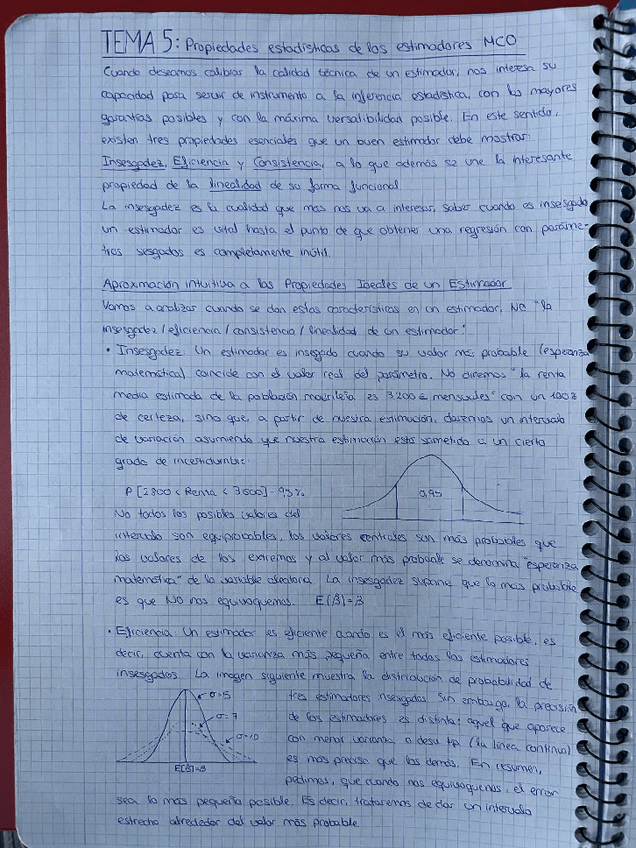 TEMA 5: Propiedades estadísticas de los estimadores MCO
Cuando deseamos calibrar la calidad técnica de un estimador, nos interesa su
capacidad para servir de instrumento a la inferencia estadística, con las mayores
garantías posibles y con la máxima versatilibidad posible. En este sentido,
existen tres propiedades esenciales que un buen estimador debe mostrar:
Insesgadez, Eficiencia y Consistencia, a lo que además se une la interesante
propiedad de la linealidad de su forma funcional
La insesgadez es la cualidad que más nos va a interesar, saber cuando es insesgado
un estimador es vital hasta el punto de que obtener una regresión con paráme-
tros sesgados es completamente inútil.
Aproximación intuitiva a las Propiedades Ideales de un Estimador
Vamos a analizar cuando se dan estas características en un estimador, NO "la
insesgadez / eficiencia / consistencia / linealidad de un estimador".
• Insesgadez: Un estimador es insegado cuando su valor más probable (esperanza
matemática) coincide con el valor real del parámetro. No diremos "la renta
media estimada de la población madrileña es 3.200 € mensuales" con un 100%
de certeza, sino que, a partir de nuestra estimación, daremos un intervalo
de variación asumiendo que nuestra estimación está sometida a un cierto
grado de incertidumbre.
P [2800 < Renta < 3600] = 95%
0,95
No todos los posibles valores del
intervalo son equiprobables, los valores centrales son más probables que
los valores de los extremos y al valor más probable se denomina "esperanza
matemática" de la variable aleatoria. La insesgadez supone que lo más probable
es que NO nos equivoquemos. E(β)=β
• Eficiencia: Un estimador es eficiente cuando es el más eficiente posible, es
decir, cuenta con la varianza más pequeña entre todos los estimadores
insesgados. La imagen siguiente muestra la distribución de probabilidad de
tres estimadores insesgados. Sin embargo, la precisión
de los estimadores es distinta: aquel que aparece
con menor varianza o desv tip. (la línea continua)
es más preciso que los demás. En resumen,
pedimos, que cuando nos equivoquemos, el error
σ=5
σ=7
σ=10
E(β)=β
sea lo más pequeño posible. Es decir, trataremos de dar un intervalo
estrecho alrededor del valor más probable.